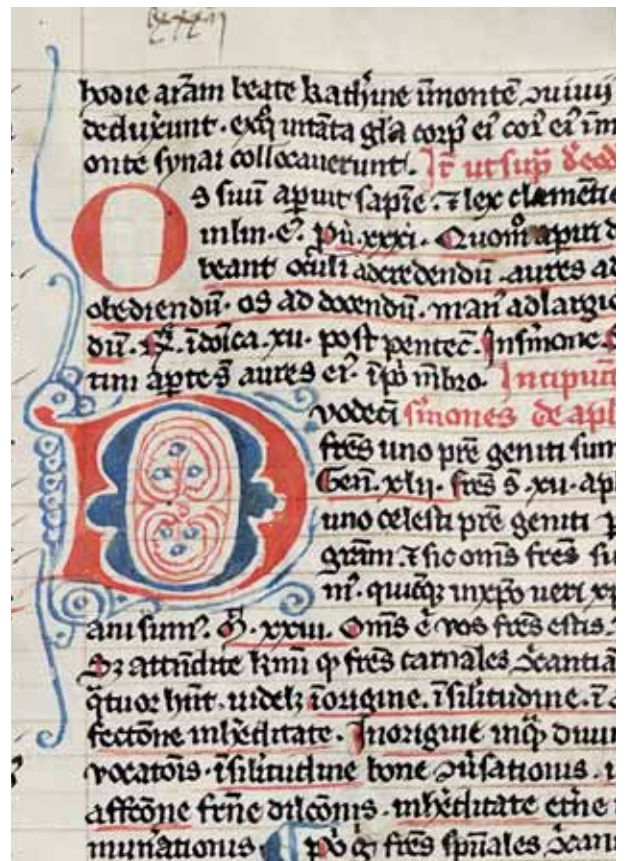 lxxxij
hodie arām beate kath'ine īmontē ꝯuiuij
deduxerunt. exq' untāta gl̄a corp' ei' cor' ei' īm
onte synai collocauerunt. It' ut sup̄
O s suū ap̄uit sapīe. ⁊ lex clemētie
pū. xxxi. Quom̄ apiri d
beant oculi adcredendū. aures ad
obediendū. os ad docendū. man' ad largiē
dū. īdōica. xii. post pentec̄. Insmone.
tim ap̄te s̄ aures ei'. īp̄o mbro. Incipiunt
D vodecī s̄mones de apl
fr̄es uno pr̄e geniti sum
Gen̄. xlij. fr̄es s̄. xii. apl
uno celesti pr̄e geniti p
grām. ⁊ sic om̄s fr̄es su
m'. quicūq; inxp̄o ueri xp̄
ani sum'. xxiii. Om̄s ē vos fr̄es estis.
Sz attn̄dite kmī qp fr̄es carnales
q̄tuor hn̄t. uidelz īorigine. īsil'itudine. ī a
fectōne inhēditate. Inorigine inq̄ diuin
vocatōis. īsil'itudine bone ꝯu'sationis. ī
affcōne fr̄ne dilcōnis. inhēditate et'ne
munerationis fr̄es sp̄uales